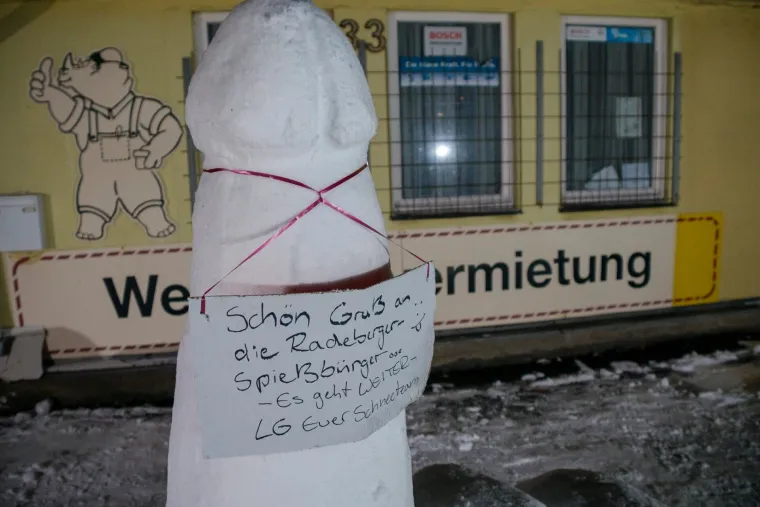 33
BOSCH
We
ermietung
Schön Gruß an..
die Radeberger-
Spießbürger
- Es geht WEITER -
LG Euer Schneeteam